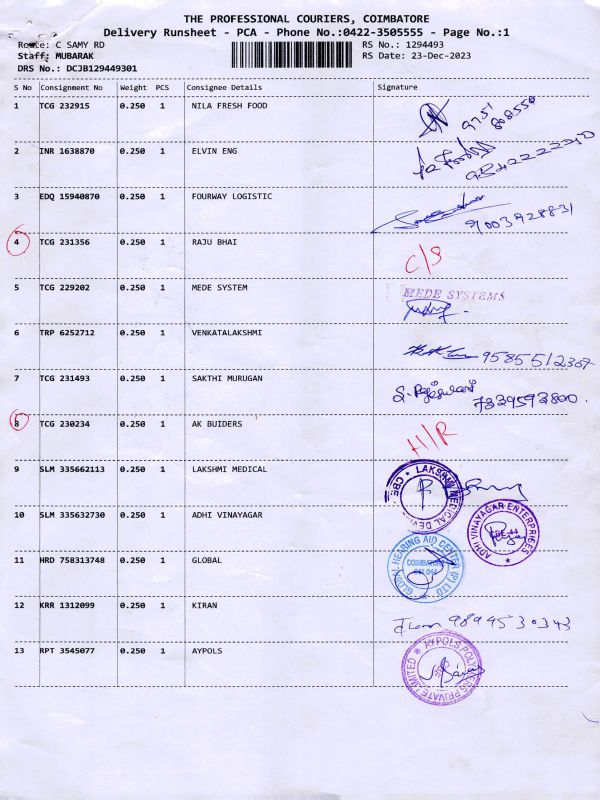 THE PROFESSIONAL COURIERS, COIMBATORE
Delivery Runsheet - PCA - Phone No.:0422-3505555 - Page No.:1
Route: C SAMY RD RS No.: 1294493
Staff: MUBARAK RS Date: 23-Dec-2023
DRS No.: DCJB129449301
S No Consignment No Weight PCS Consignee Details Signature
1 TCG 232915 0.250 1 NILA FRESH FOOD
9751
808550
2 INR 1638870 0.250 1 ELVIN ENG
3 EDQ 15940870 0.250 1 FOURWAY LOGISTIC
9003928831
4 TCG 231356 0.250 1 RAJU BHAI
C/S
5 TCG 229202 0.250 1 MEDE SYSTEM
MEDE SYSTEMS
6 TRP 6252712 0.250 1 VENKATALAKSHMI
9585512367
7 TCG 231493 0.250 1 SAKTHI MURUGAN
S. Rajeswari
7339593800.
8 TCG 230234 0.250 1 AK BUIDERS
H/R
9 SLM 335662113 0.250 1 LAKSHMI MEDICAL
LAKSHMI MEDICAL DEVI
CBE
10 SLM 335632730 0.250 1 ADHI VINAYAGAR
ADHI VINAYAGAR ENTERPRISES
11 HRD 758313748 0.250 1 GLOBAL
GLOBAL HEARING AID CENTRE (P) LTD
COIMBATORE
12 KRR 1312099 0.250 1 KIRAN
9894530343
13 RPT 3545077 0.250 1 AYPOLS
AYPOLS POLYMERS PRIVATE LIMITED